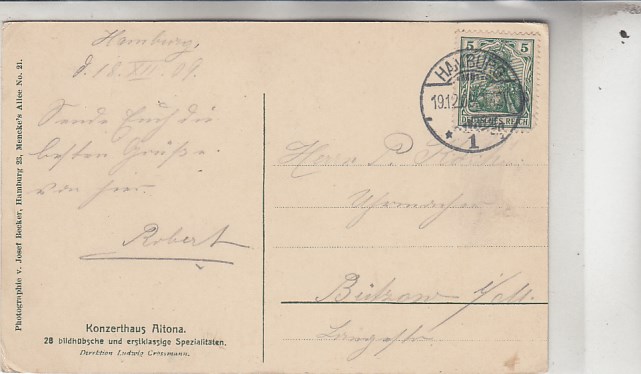 Hamburg,
d. 18. XII. 09.
Sende Euch die
besten Grüße
von hier.
Robert
Konzerthaus Altona.
28 bildhübsche und erstklassige Spezialitäten.
Direktion Ludwig Crossmann.
Photographie v. Josef Becker, Hamburg 23, Mencke's Allee No. 21.
5 5
DEUTSCHES REICH
HAMBURG
19.12
* 1
Herrn P.
Uhrmacher
Bützow i/M.
Langestr.